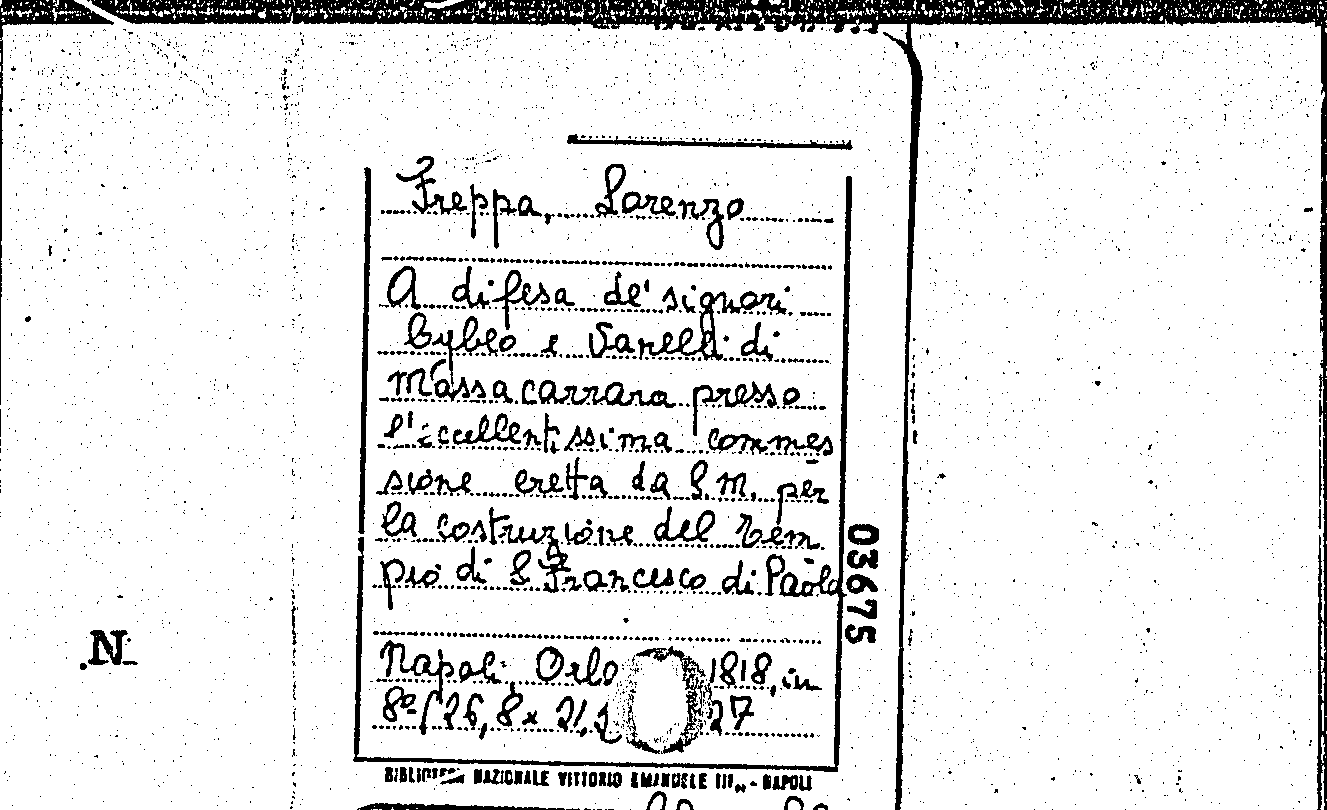 Freppa, Lorenzo
A difesa de' signori
Cybeo e Vanelli di
Massa carrara presso
l'eccellentissima commes
sione eretta da S.M. per
la costruzione del Tem
pio di S. Francesco di Paola
03675
.N.
Napoli, Orlo 1818, in
8º (26,8 x 21, 27
BIBLIOTECA NAZIONALE VITTORIO EMANUELE III„ - NAPOLI